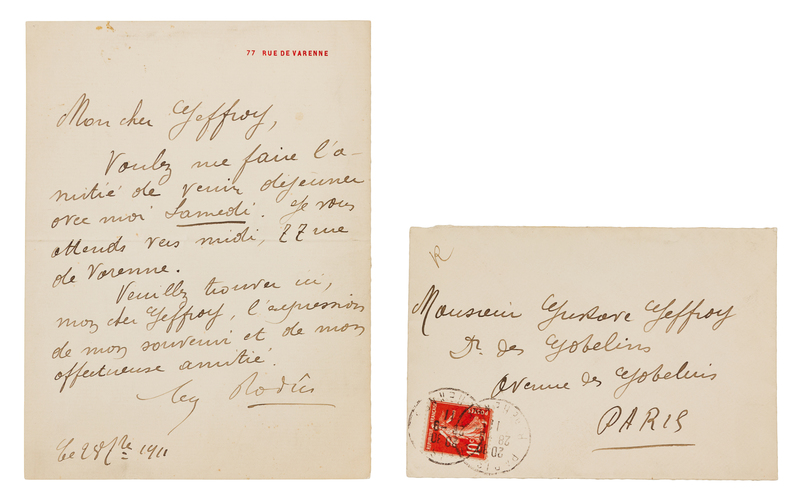 77 RUE DE VARENNE
Mon cher Geffroy,
Voulez me faire l'a-
mitié de venir déjeuner
avec moi Samedi. Je vous
attends vers midi, 77 rue
de Varenne.
Veuillez trouver ici,
mon cher Geffroy, l'expression
de mon souvenir et de mon
affectueuse amitié.
Aug Rodin
Le 28 1911
Monsieur Gustave Geffroy
Dr. des Gobelins
Avenue des Gobelins
PARIS
POSTES
10c